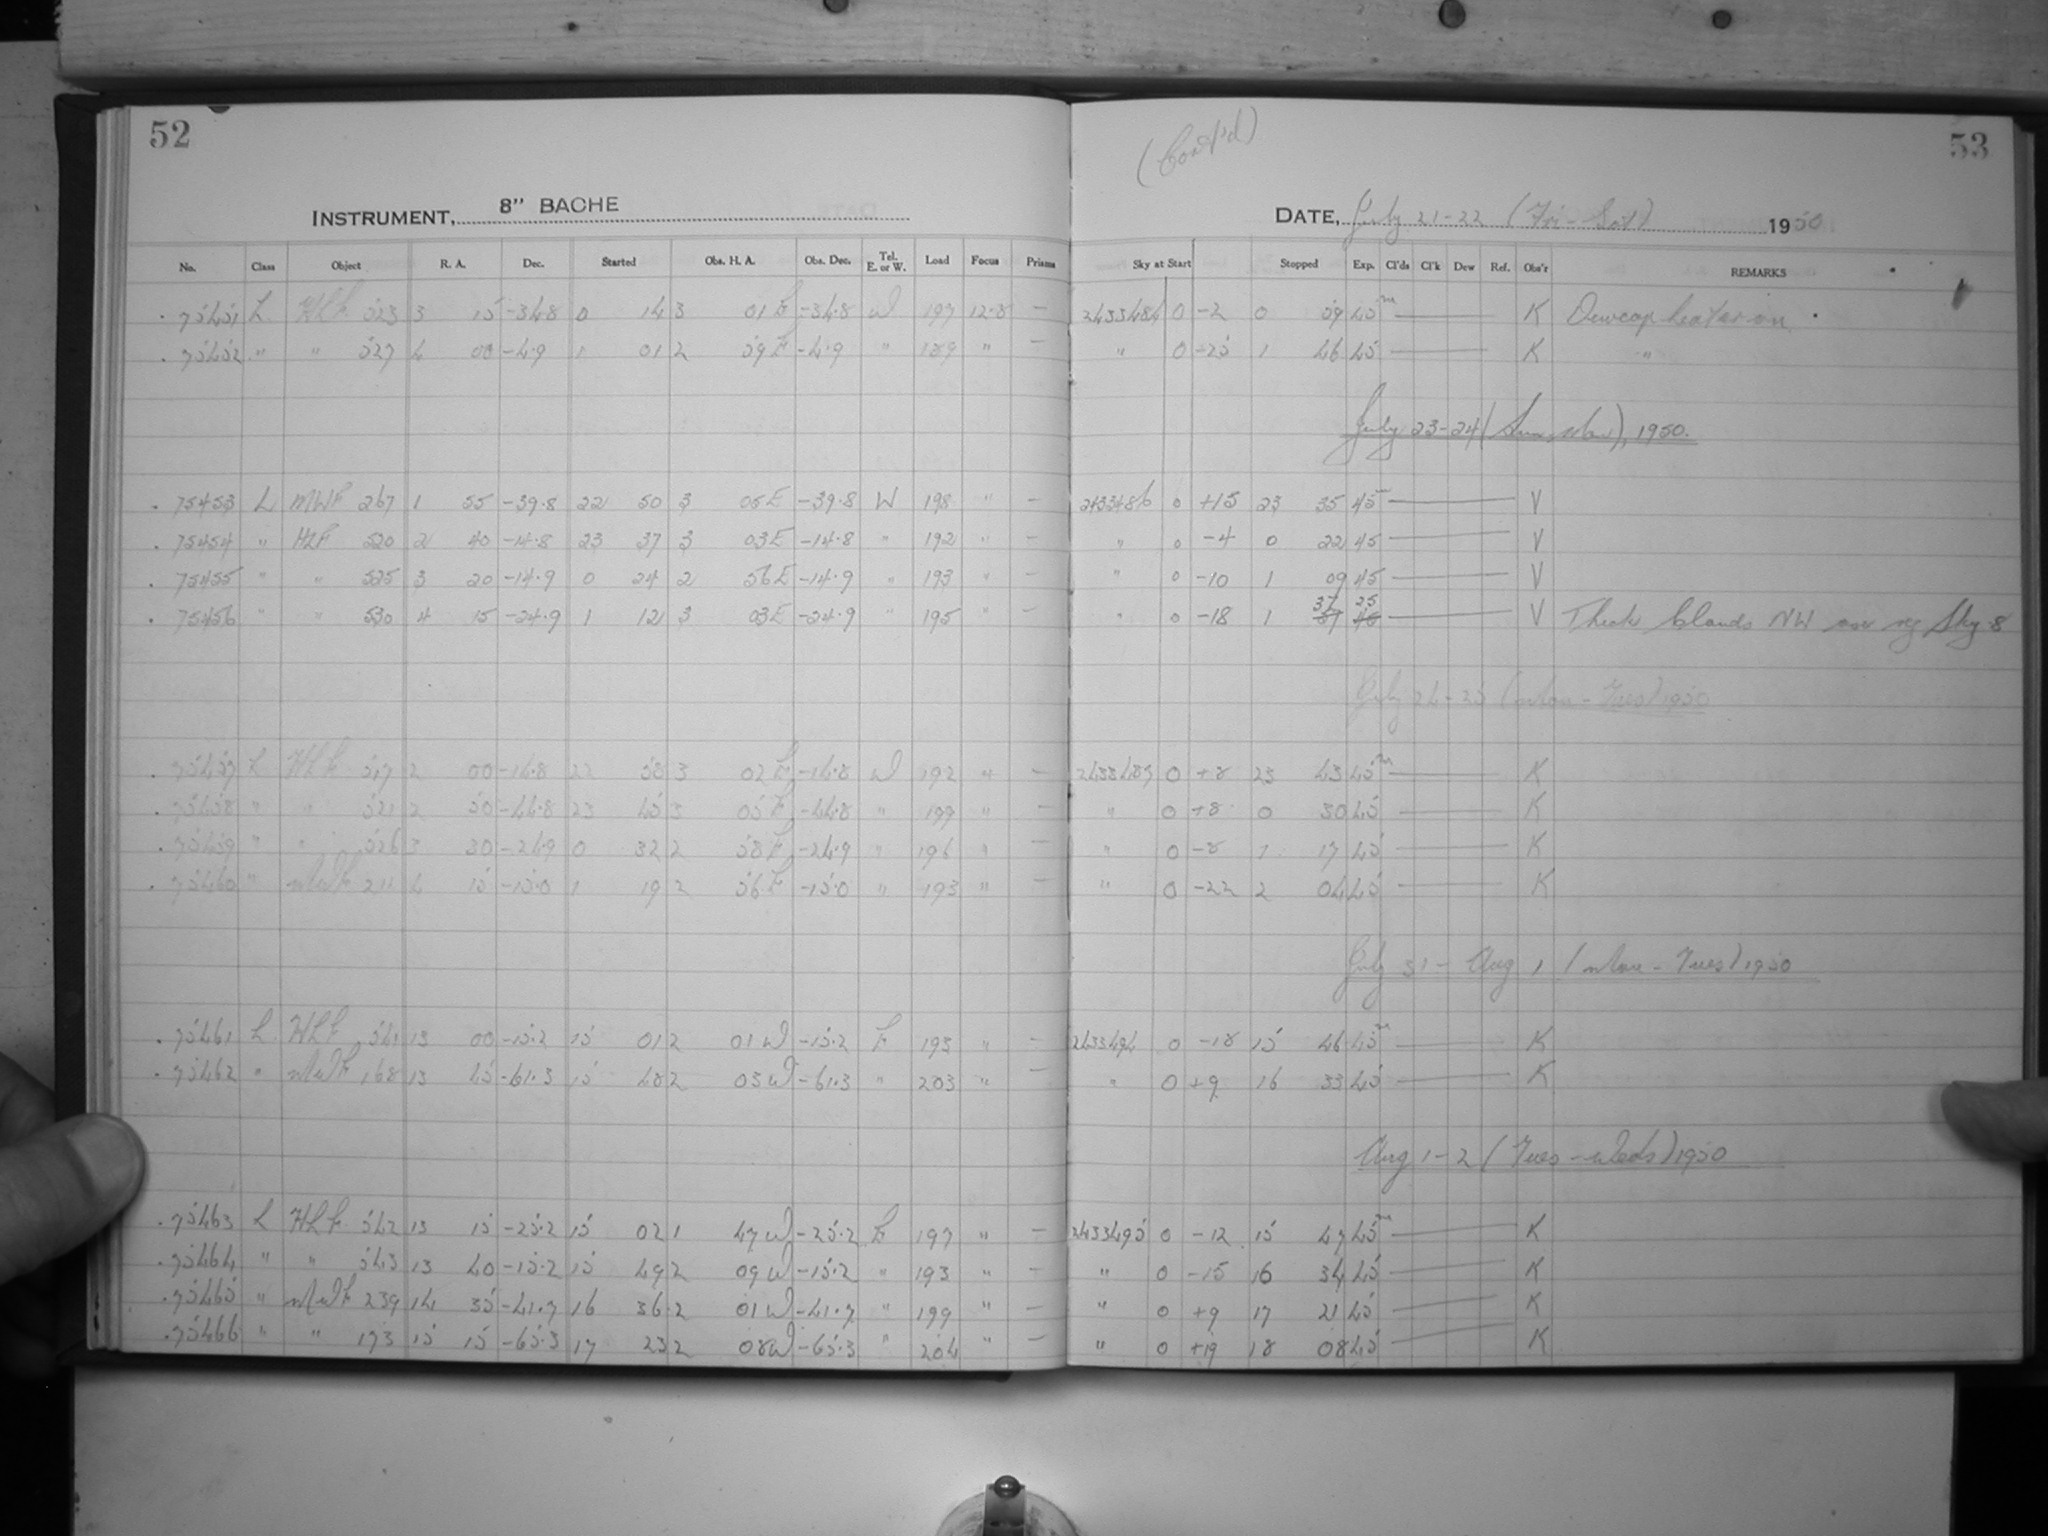 52
INSTRUMENT, 8" BACHE
No. Class Object R. A. Dec. Started Obs. H. A. Obs. Dec. Tel. E. or W. Load Focus Prisms
75451 L HLF 523 3 15 -34.8 0 14 3 01 E -34.8 W 197 12.8 —
75452 " " 527 4 00 -4.9 1 01 2 59 E -4.9 " 189 " —
75453 L MWF 267 1 55 -39.8 22 50 3 05 E -39.8 W 198 " —
75454 " HLF 520 2 40 -14.8 23 37 3 03 E -14.8 " 192 " —
75455 " " 525 3 20 -14.9 0 24 2 56 E -14.9 " 193 " —
75456 " " 530 4 15 -24.9 1 12 3 03 E -24.9 195 " —
75457 L HLF 517 2 00 -14.8 22 58 3 02 E -14.8 W 192 " —
75458 " " 521 2 50 -44.8 23 45 3 05 E -44.8 " 199 " —
75459 " " 526 3 30 -24.9 0 32 2 58 E -24.9 " 196 " —
75460 " MWF 211 4 15 -15.0 1 19 2 56 E -15.0 " 193 " —
75461 L HLF 541 13 00 -15.2 15 01 2 01 W -15.2 E 193 " —
75462 " MWF 168 13 45 -61.3 15 48 2 03 W -61.3 " 203 " —
75463 L HLF 542 13 15 -25.2 15 02 1 47 W -25.2 E 197 " —
75464 " " 543 13 40 -15.2 15 49 2 09 W -15.2 " 193 " —
75465 " MWF 239 14 35 -41.7 16 36 2 01 W -41.7 " 199 " —
75466 " " 173 15 15 -65.3 17 23 2 08 W -65.3 " 204 " —
(Cont'd)
53
DATE, July 21-22 (Fri-Sat) 1950
Sky at Start Stopped Exp. Cl'ds Cl'k Dew Ref. Obs'r REMARKS
2433484 0 -2 0 59 45m — K Dewcap heater on
" 0 -25 1 46 45 — K "
July 23-24 (Sun-Mon), 1950.
2433486 0 +15 23 35 45m — V
" 0 -4 0 22 45 — V
" 0 -10 1 09 45 — V
" 0 -18 1 37 25 — V Thick Clouds NW Sky 8
July 24-25 (Mon-Tues) 1950
2433487 0 +8 23 43 45m — K
" 0 +8 0 30 45 — K
" 0 -8 1 17 45 — K
" 0 -22 2 04 45 — K
July 31 - Aug 1 (Mon-Tues) 1950
2433494 0 -18 15 46 45m — K
" 0 +9 16 33 45 — K
Aug 1-2 (Tues-Weds) 1950
2433495 0 -12 15 47 45m — K
" 0 -15 16 34 45 — K
" 0 +9 17 21 45 — K
" 0 +19 18 08 45 — K